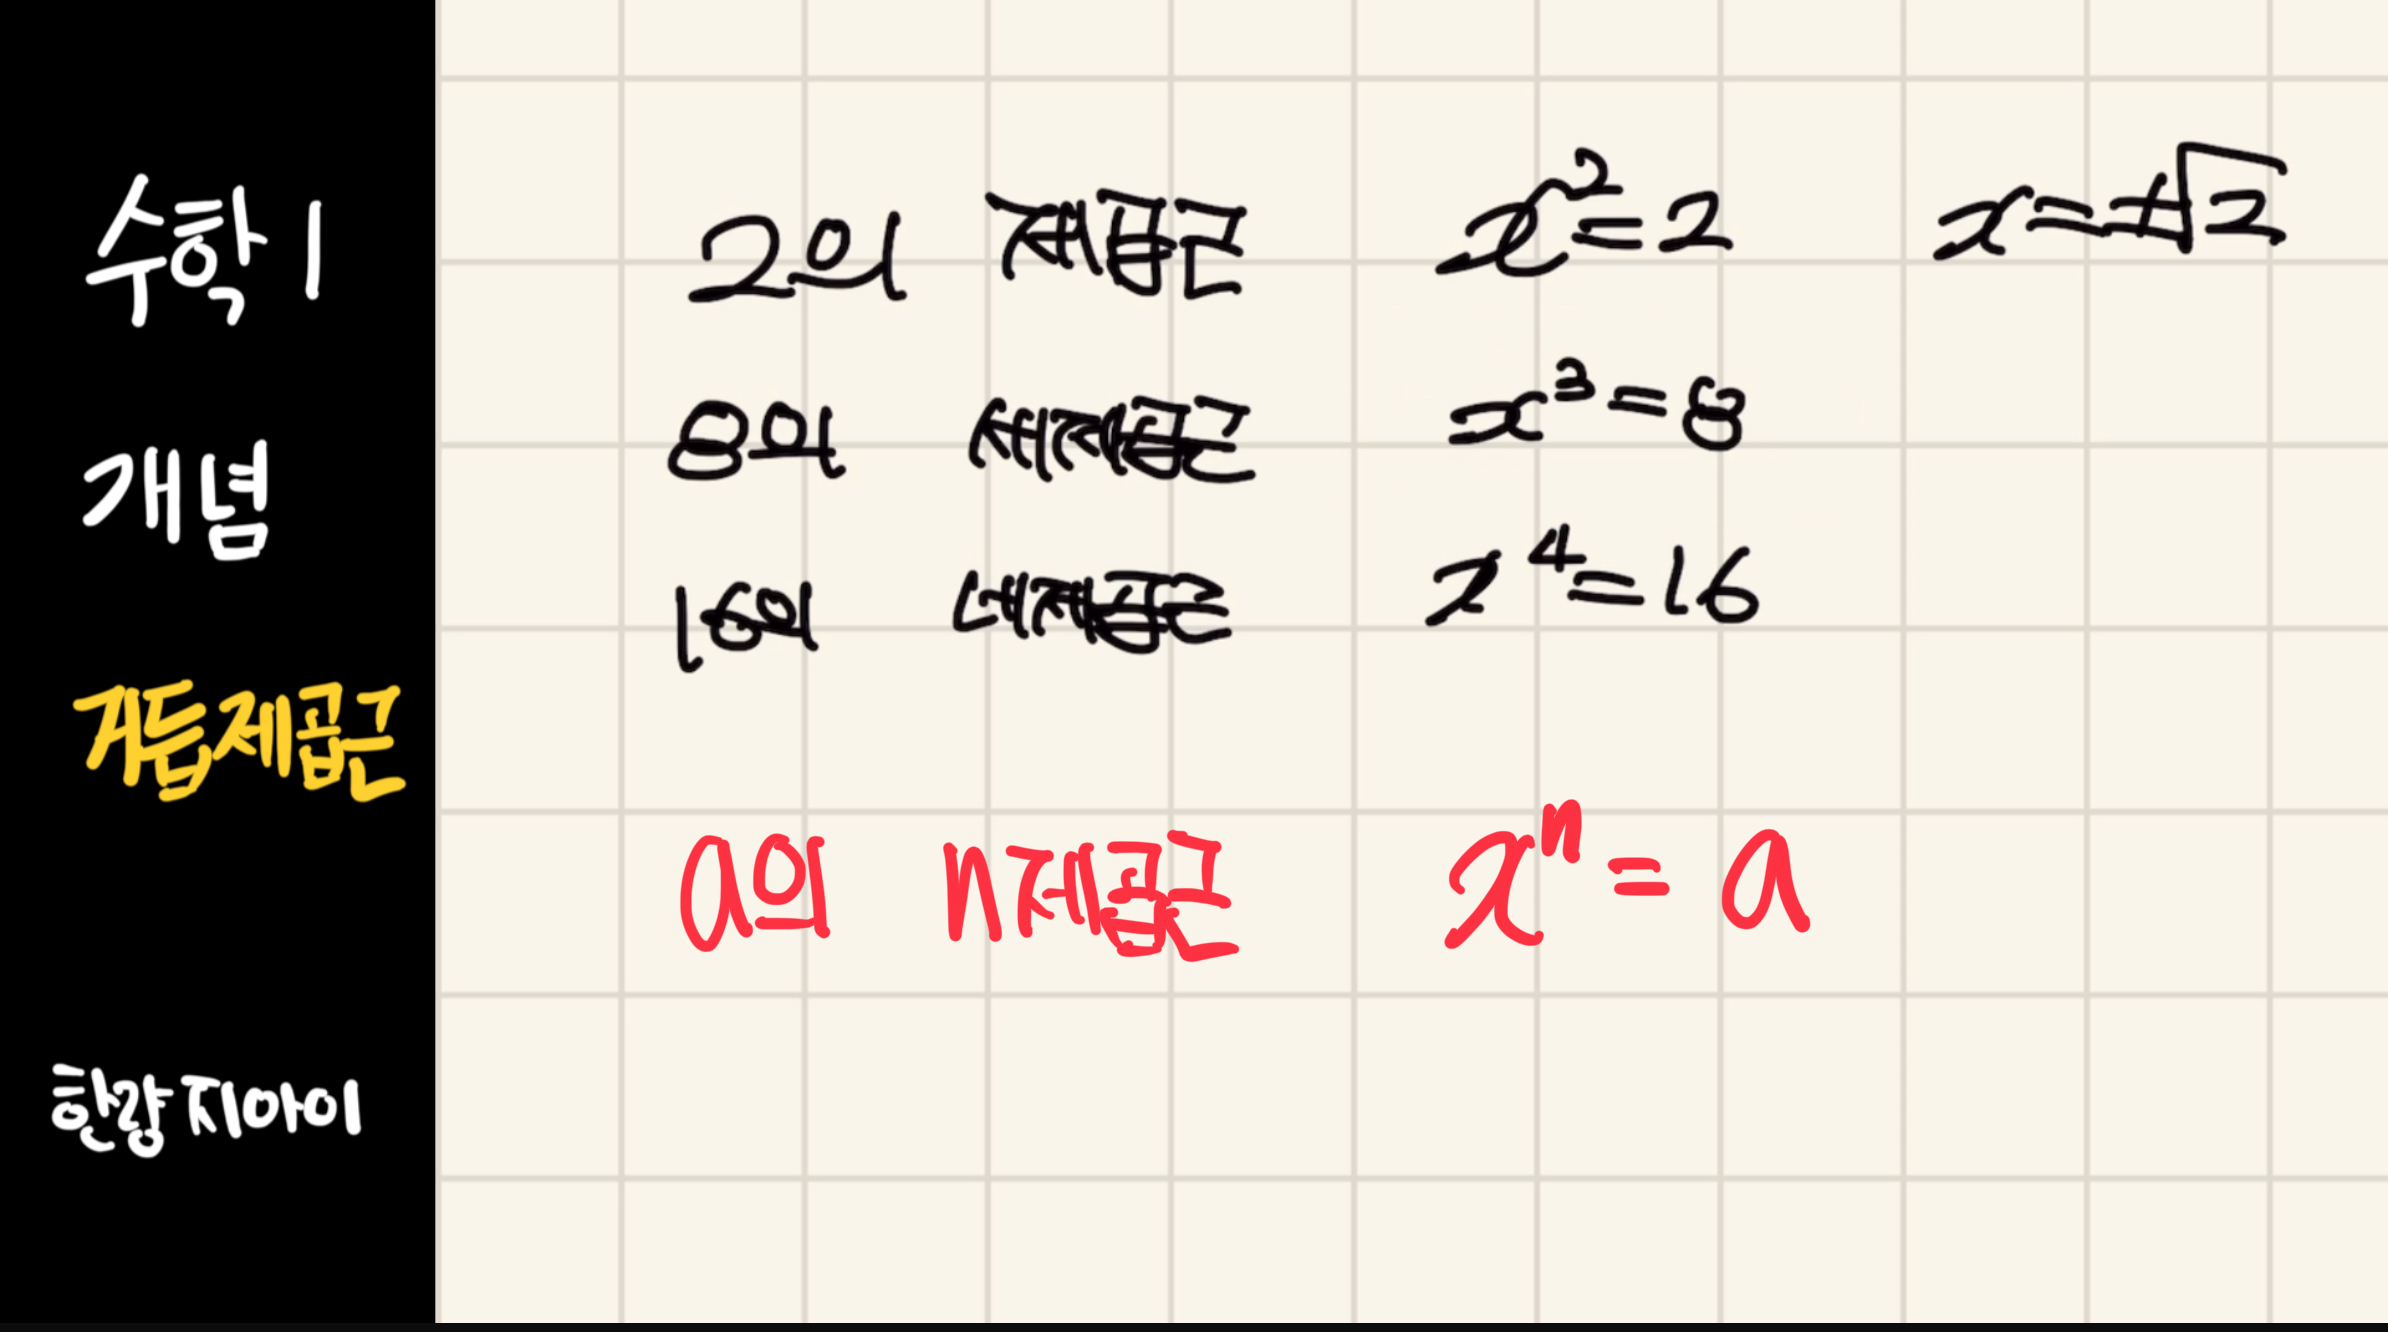 수학 1
개념
거듭제곱근
한량지아이
2의 제곱근 x²=2 x=±√2
8의 세제곱근 x³=8
16의 네제곱근 x⁴=16
a의 n제곱근 xⁿ=a